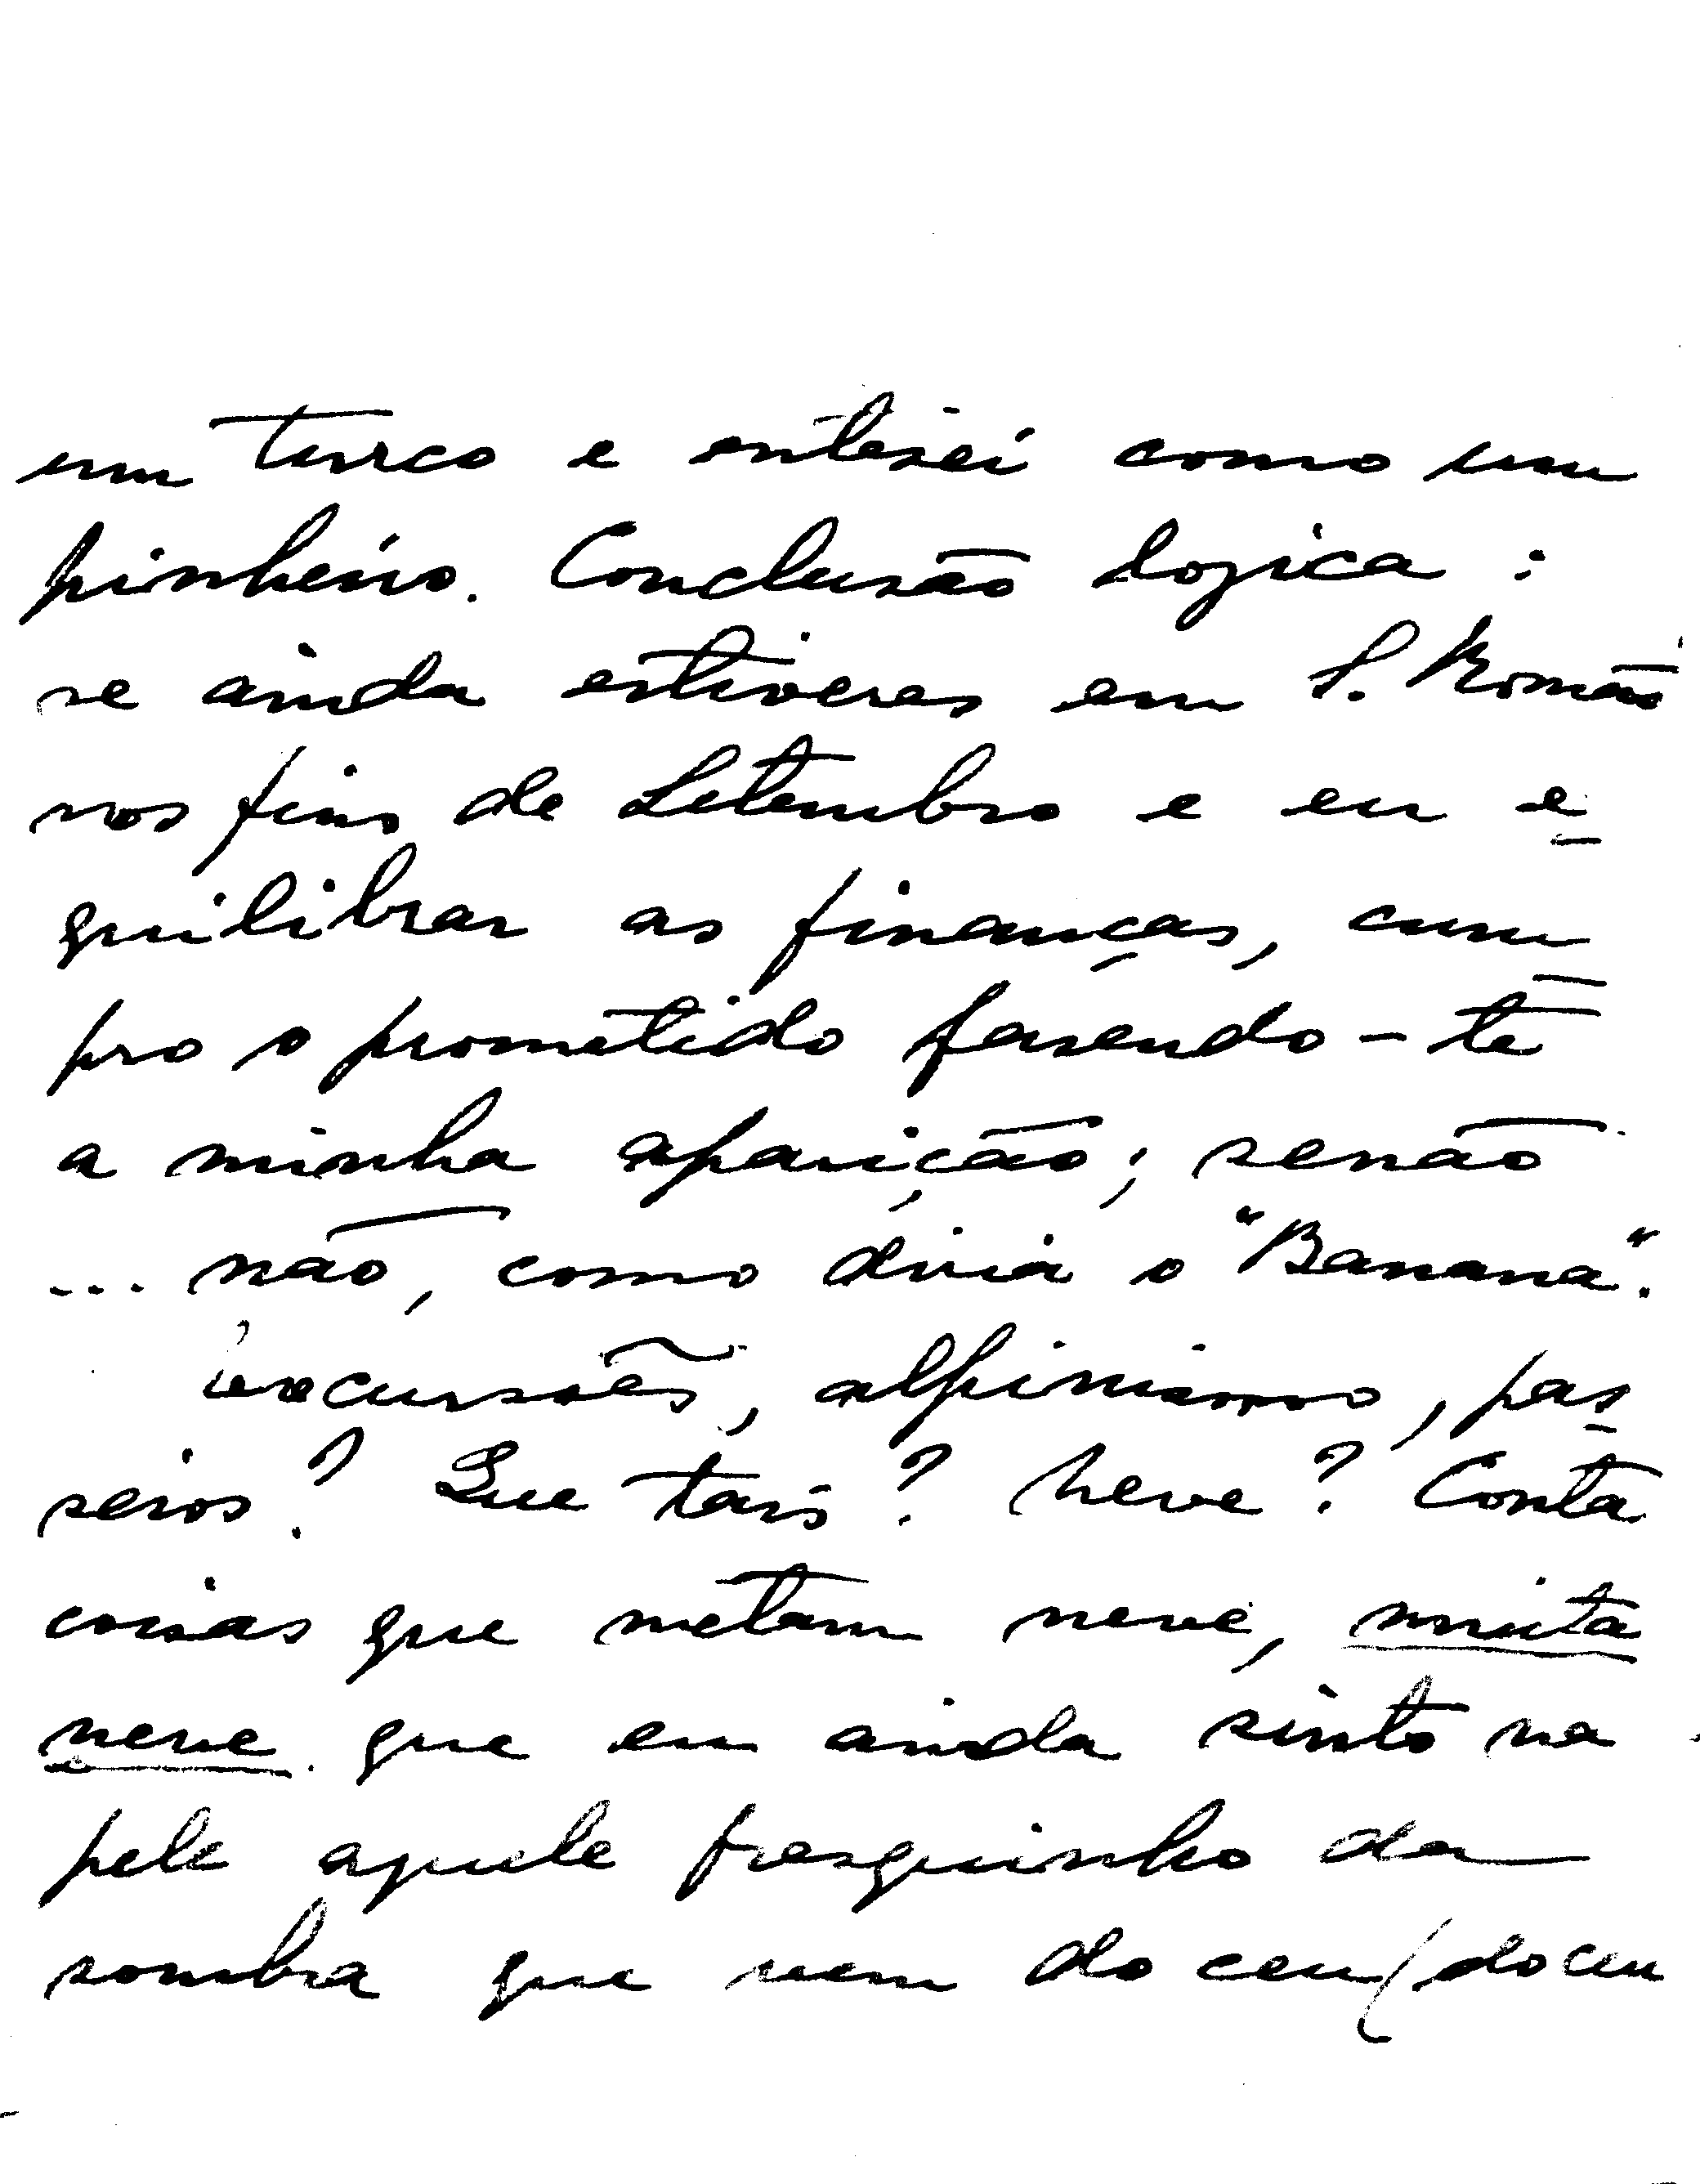 um turco e entesei como um
pinheiro. Conclusão logica :
se ainda estiveres em S. Romão
nos fins de Setembro e eu e-
quilibrar as finanças, cum-
pro o prometido fazendo-te
a minha aparição; senão
... não, como dizia o "Banana".
excursões, alpinismo, pas-
seios? Que tais? Neve? Conta
coisas que metam neve, muita
neve. que eu ainda sinto na
pele aquele fresquinho da
sombra que vem do ceu (do ceu